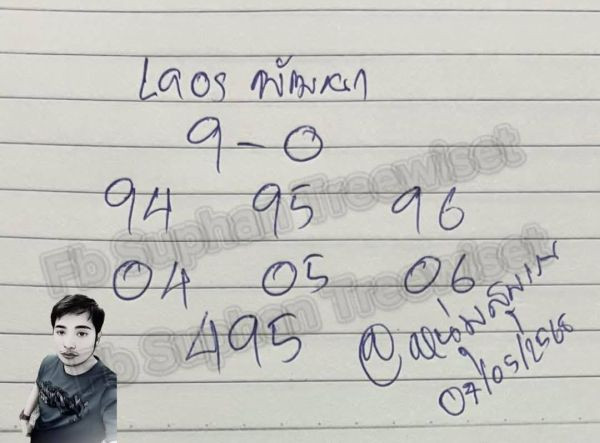 Laos พัฒนา
9-0
94 95 96
04 05 06
495
07/05/2568
Fb Suphan Treewiset
Fb Suphan Treewiset